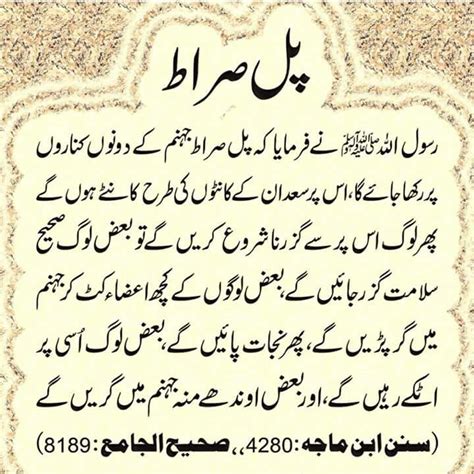 پل صراط
رسول اللہ ﷺ نے فرمایا کہ پل صراط جہنم کے دونوں کناروں
پر رکھا جائے گا، اس پر سعدان کے کانٹوں کی طرح کانٹے ہوں گے
پھر لوگ اس پر سے گزرنا شروع کریں گے تو بعض لوگ صحیح
سلامت گزر جائیں گے، بعض لوگوں کے کچھ اعضاء کٹ کر جہنم
میں گر پڑیں گے، پھر نجات پائیں گے، بعض لوگ اُسی پر
اٹکے رہیں گے، اور بعض اوندھے منہ جہنم میں گریں گے
(سنن ابن ماجه: 4280،، صحيح الجامع: 8189)